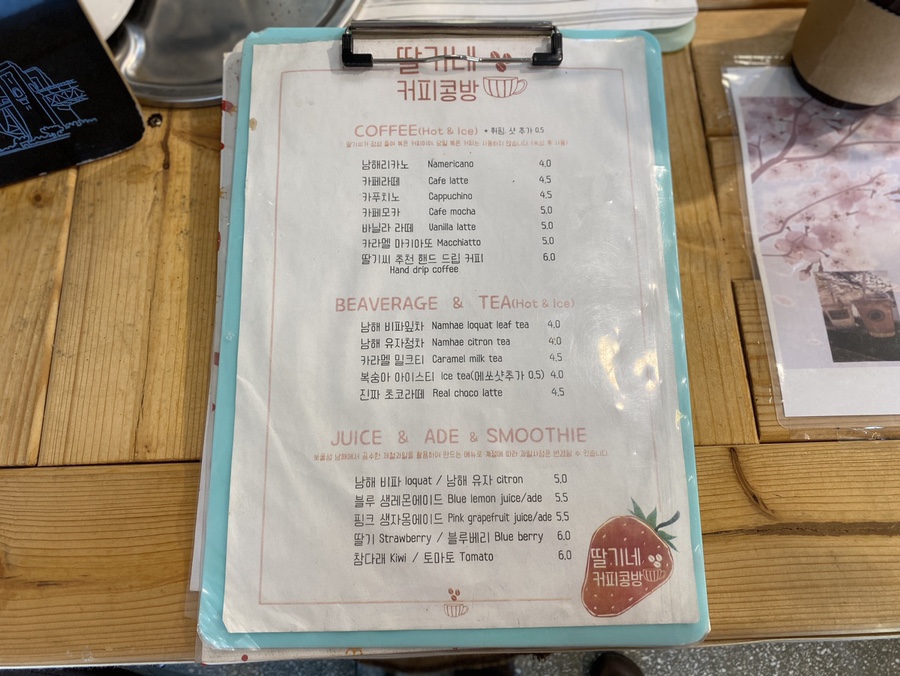 딸기네
커피콩방
COFFEE(Hot & Ice) * 휘핑, 샷 추가 0.5
남해리카노 Namericano 4.0
카페라떼 Cafe latte 4.5
카푸치노 Cappuchino 4.5
카페모카 Cafe mocha 5.0
바닐라 라떼 Vanilla latte 5.0
카라멜 마키아또 Macchiatto 5.0
딸기씨 추천 핸드 드립 커피 6.0
Hand drip coffee
BEAVERAGE & TEA(Hot & Ice)
남해 비파잎차 Namhae loquat leaf tea 4.0
남해 유자청차 Namhae citron tea 4.0
카라멜 밀크티 Caramel milk tea 4.5
복숭아 아이스티 Ice tea(에쏘샷추가 0.5) 4.0
진짜 초코라떼 Real choco latte 4.5
JUICE & ADE & SMOOTHIE
보물섬 남해에서 공수한 제철과일을 활용하여 만드는 메뉴로 계절에 따라 과일사정은 변경될 수 있습니다
남해 비파 loquat / 남해 유자 citron 5.0
블루 생레몬에이드 Blue lemon juice/ade 5.5
핑크 생자몽에이드 Pink grapefruit juice/ade 5.5
딸기 Strawberry / 블루베리 Blue berry 6.0
참다래 Kiwi / 토마토 Tomato 6.0
딸기네
커피콩방